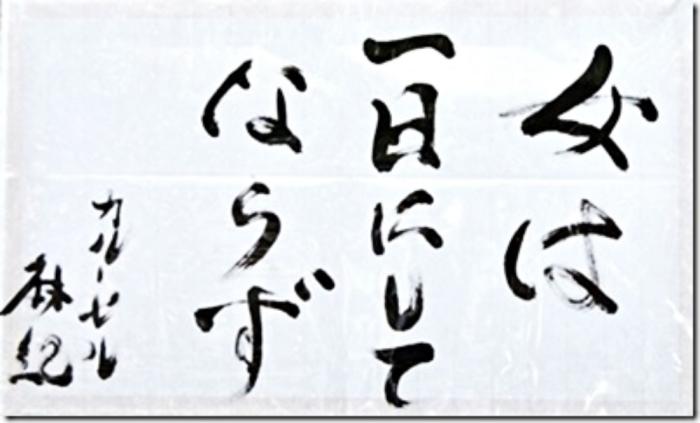 女は
一日にして
ならず
カルーセル
麻紀